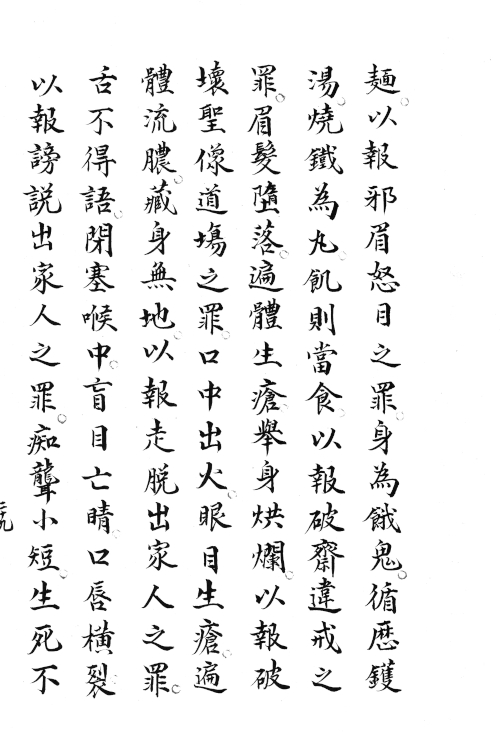 麺。以報邪眉怒目之罪。身為餓鬼。循歴鑊
湯。燒鐵為丸飢則當食。以報破齋違戒之
罪。眉髮墮落。遍體生瘡。舉身烘爛。以報破
壞聖像道場之罪。口中出火。眼目生瘡。遍
體流膿。藏身無地。以報走脫出家人之罪。
舌不得語。閉塞喉中。盲目亡睛。口唇橫裂。
以報謗説出家人之罪。痴聾小短。生死不
二九